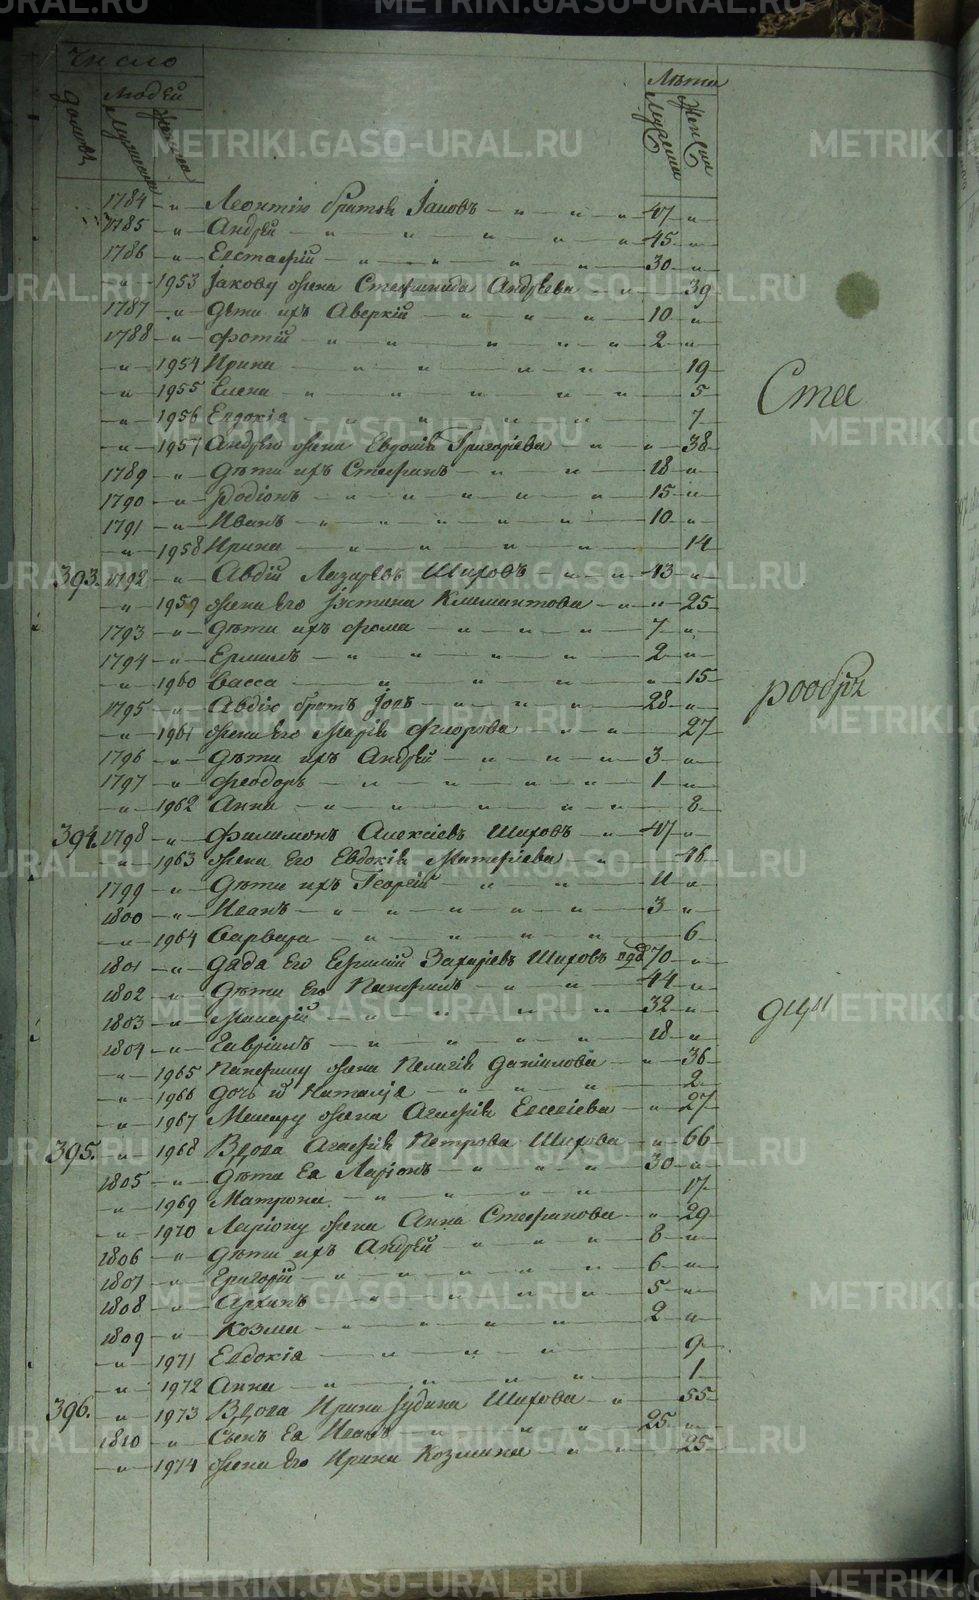 METRIKI.GASO-URAL.RU
Число Лѣта
домовъ Людей Мужеска Женска
1784 " Леонтію братья Іаковъ " " " 47 "
1785 " Андрей " " " " 45 "
1786 " Евстафій " " " " 30 "
" 1953 Іакову жена Стефанида Андрѣева " " 39
1787 " Дѣти ихъ Аверкій " " " 10 "
1788 " Фотій " " " " " 2 "
" 1954 Ирина " " " " 19
" 1955 Елена " " " " " 5
" 1956 Евдокія " " " " " 7
" 1957 Андрею жена Евдокія Григоріева " " 38
1789 " Дѣти ихъ Стефанъ " " " 18 "
1790 " Родіонъ " " " " " 15 "
1791 " Иванъ " " " " " 10 "
" 1958 Ирина " " " " " 14
393. 1792 " Авдій Лазаревъ Шиховъ " " 43 "
" 1959 жена его Іустина Климантова " " 25
1793 " Дѣти ихъ Фома " " " " 7 "
1794 " Ермилъ " " " " " 2 "
" 1960 Васса " " " " 15
1795 " Авдію братъ Іовъ " " " 28 "
" 1961 жена его Марія Флорова " " 27
1796 " Дѣти ихъ Андрей " " " 3 "
1797 " Феодоръ " " " " " 1 "
" 1962 Анна " " " " " 8
394. 1798 " Филимонъ Алексіевъ Шиховъ " 47 "
" 1963 жена его Евдокія Матфіева " 46
1799 " Дѣти ихъ Георгій " " 11 "
1800 " Иванъ " " " " " 3 "
" 1964 Варвара " " " " " 6
1801 " Дядя его Евфимій Захаріевъ Шиховъ 70 "
1802 " Дѣти его Панфилъ " " 44 "
1803 " Макарій " " " " " 32 "
1804 " Гавріилъ " " " " 18 "
" 1965 Панфилу жена Пелагія Даніилова " 36
" 1966 дочь Наталія " " " 2
" 1967 Макару жена Агафія Евсевіева " 27
395. " 1968 Вдова Агафія Петрова Шихова " 66
1805 " Дѣти ея Ларіонъ " " " 30 "
" 1969 Матрона " " " " 17
" 1970 Ларіону жена Анна Стефанова " 29
1806 " Дѣти ихъ Андрей " " " 8 "
1807 " Григорій " " " " " 6 "
1808 " Архипъ " " " " 5 "
1809 " Козма " " " " 2 "
" 1971 Евдокія " " " " 9
" 1972 Анна " " " " 1
396. " 1973 Вдова Ирина Іудина Шихова " 55
1810 " Сынъ ея Иванъ " " " 25 "
" 1974 жена его Ирина Козмина " " 25